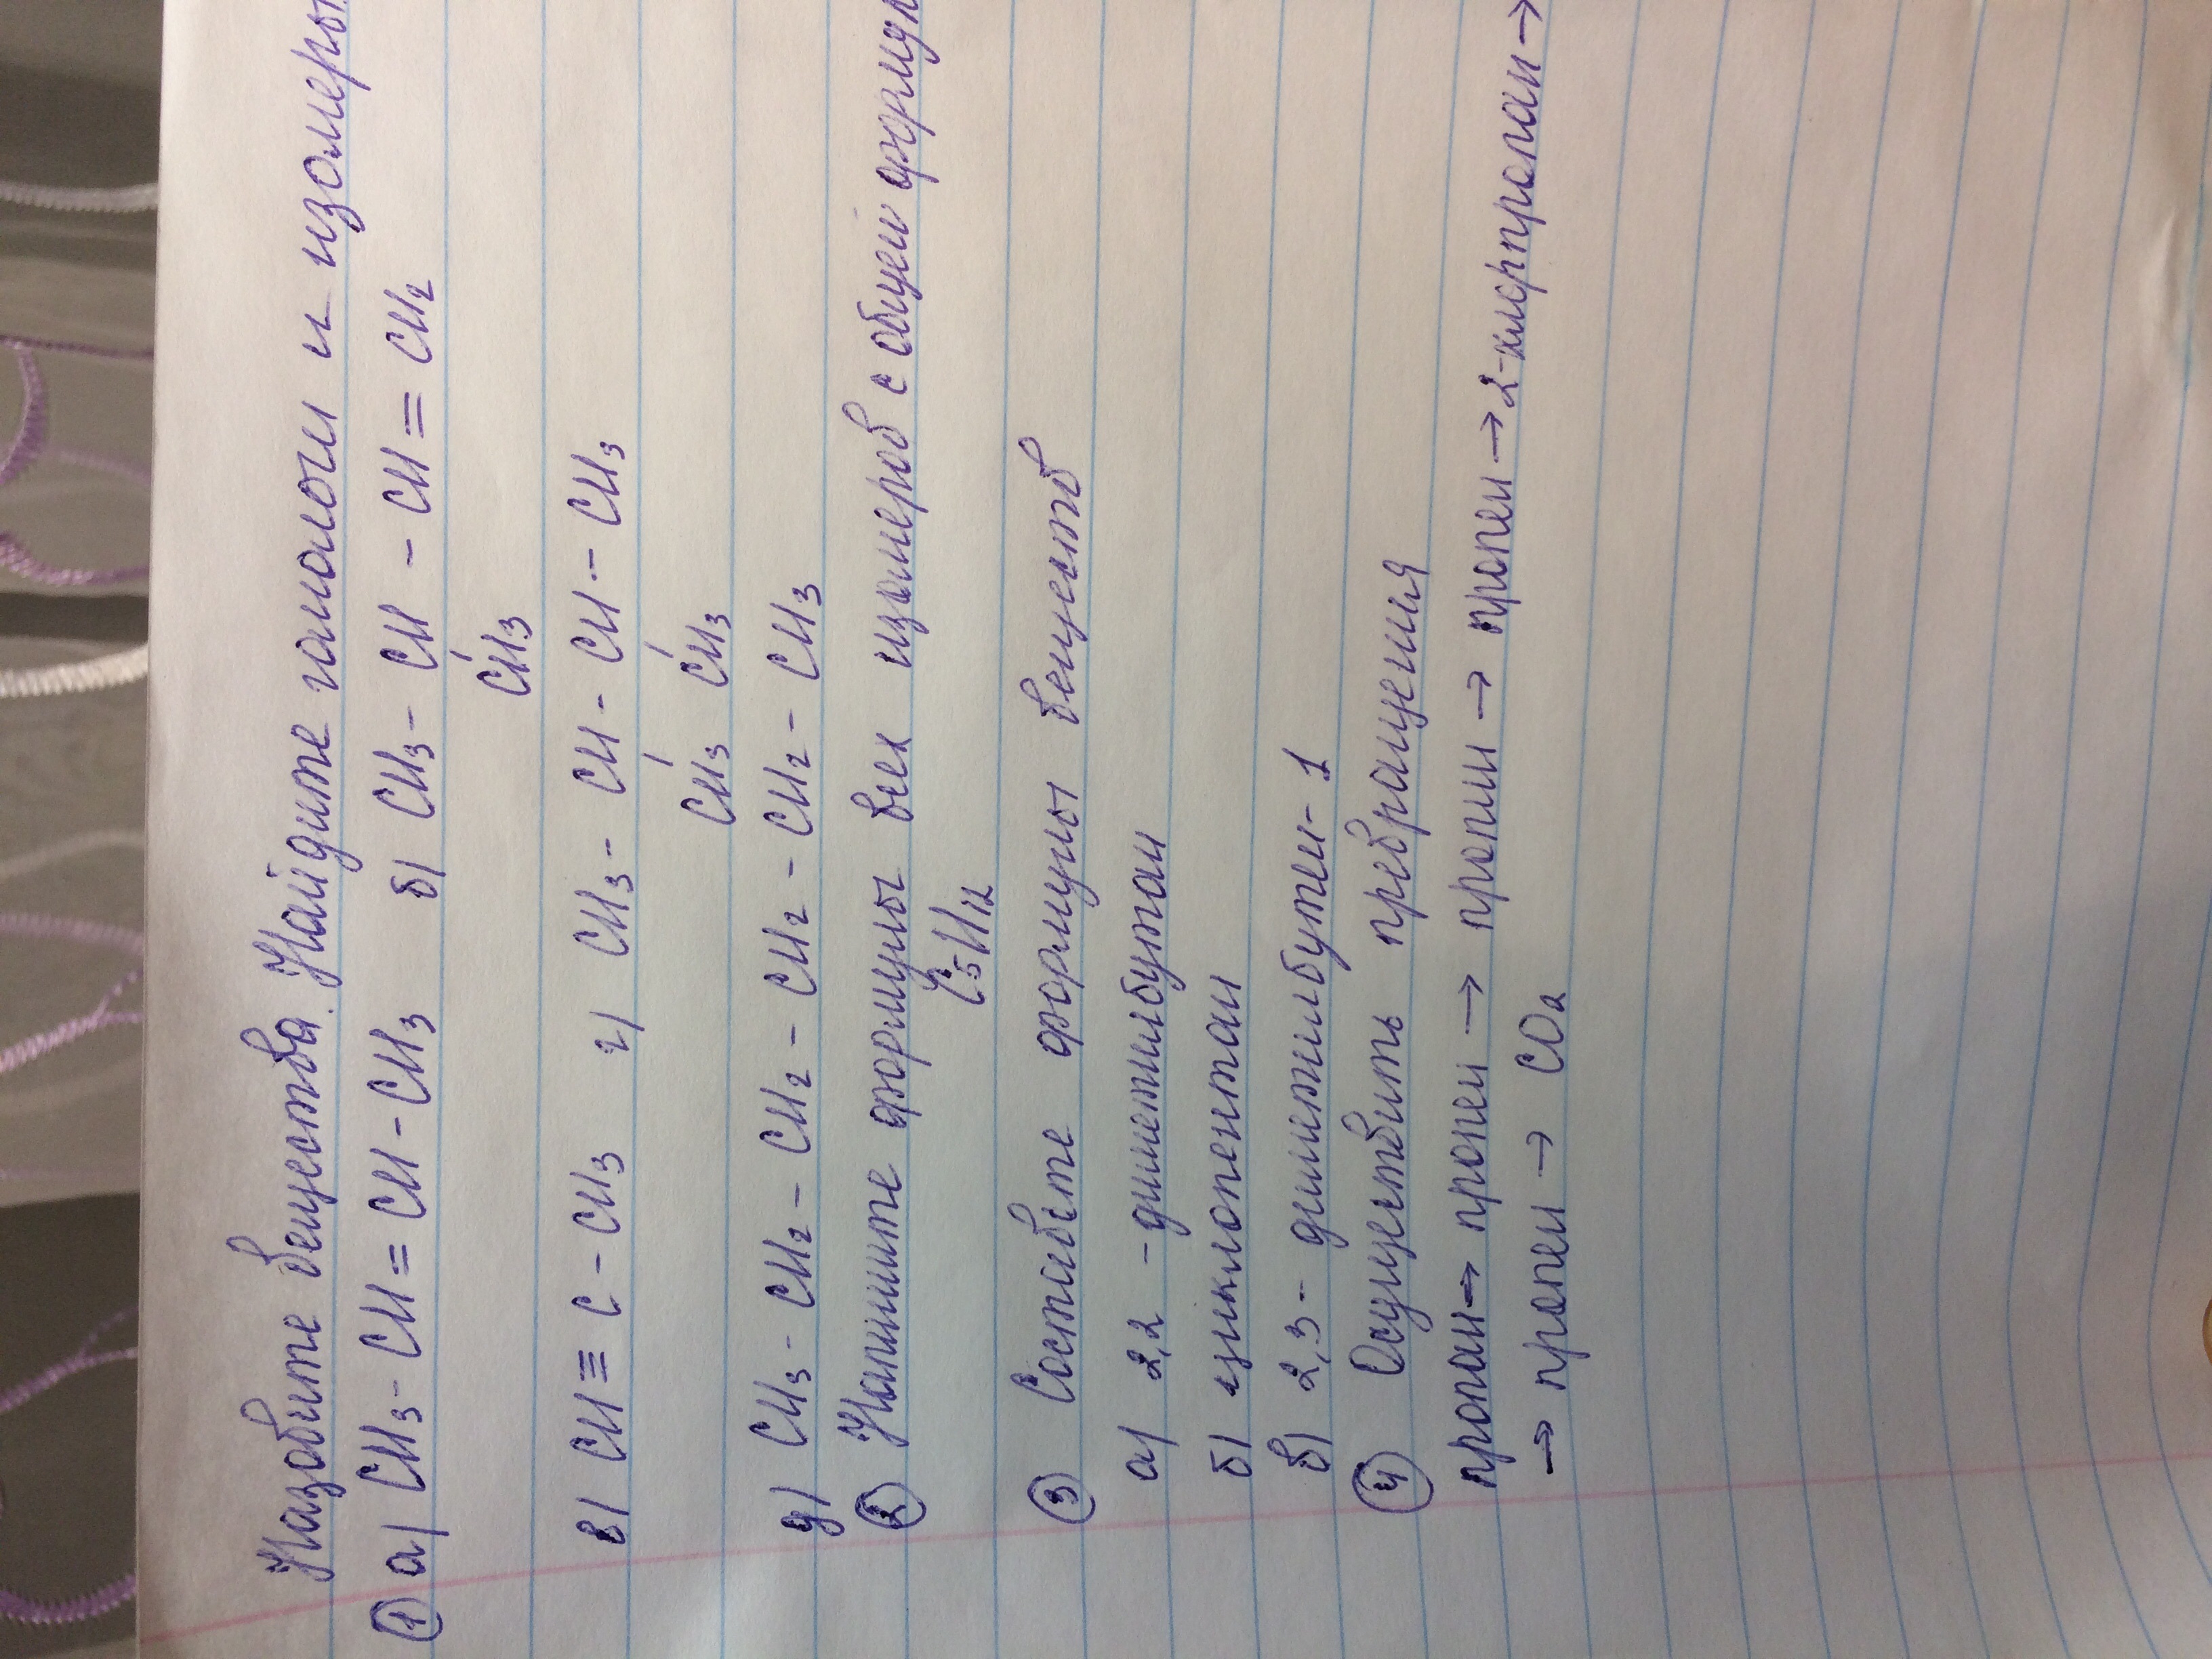 Назовите вещества. Найдите гомологи и изомеры.
① а) CH3 - CH = CH - CH3 б) CH3 - CH - CH = CH2
CH3
в) CH ≡ C - CH3 г) CH3 - CH - CH - CH3
CH3 CH3
д) CH3 - CH2 - CH2 - CH2 - CH2 - CH3
② Напишите формулы всех изомеров с общей
C5H12
③ Составьте формулы веществ
а) 2,2 - диметилбутан
б) циклопентан
в) 2,3 - диметилбутен-1
④ Осуществить превращения
пропан → пропен → пропин → пропен → 2-хлорпропан →
→ пропен → CO2